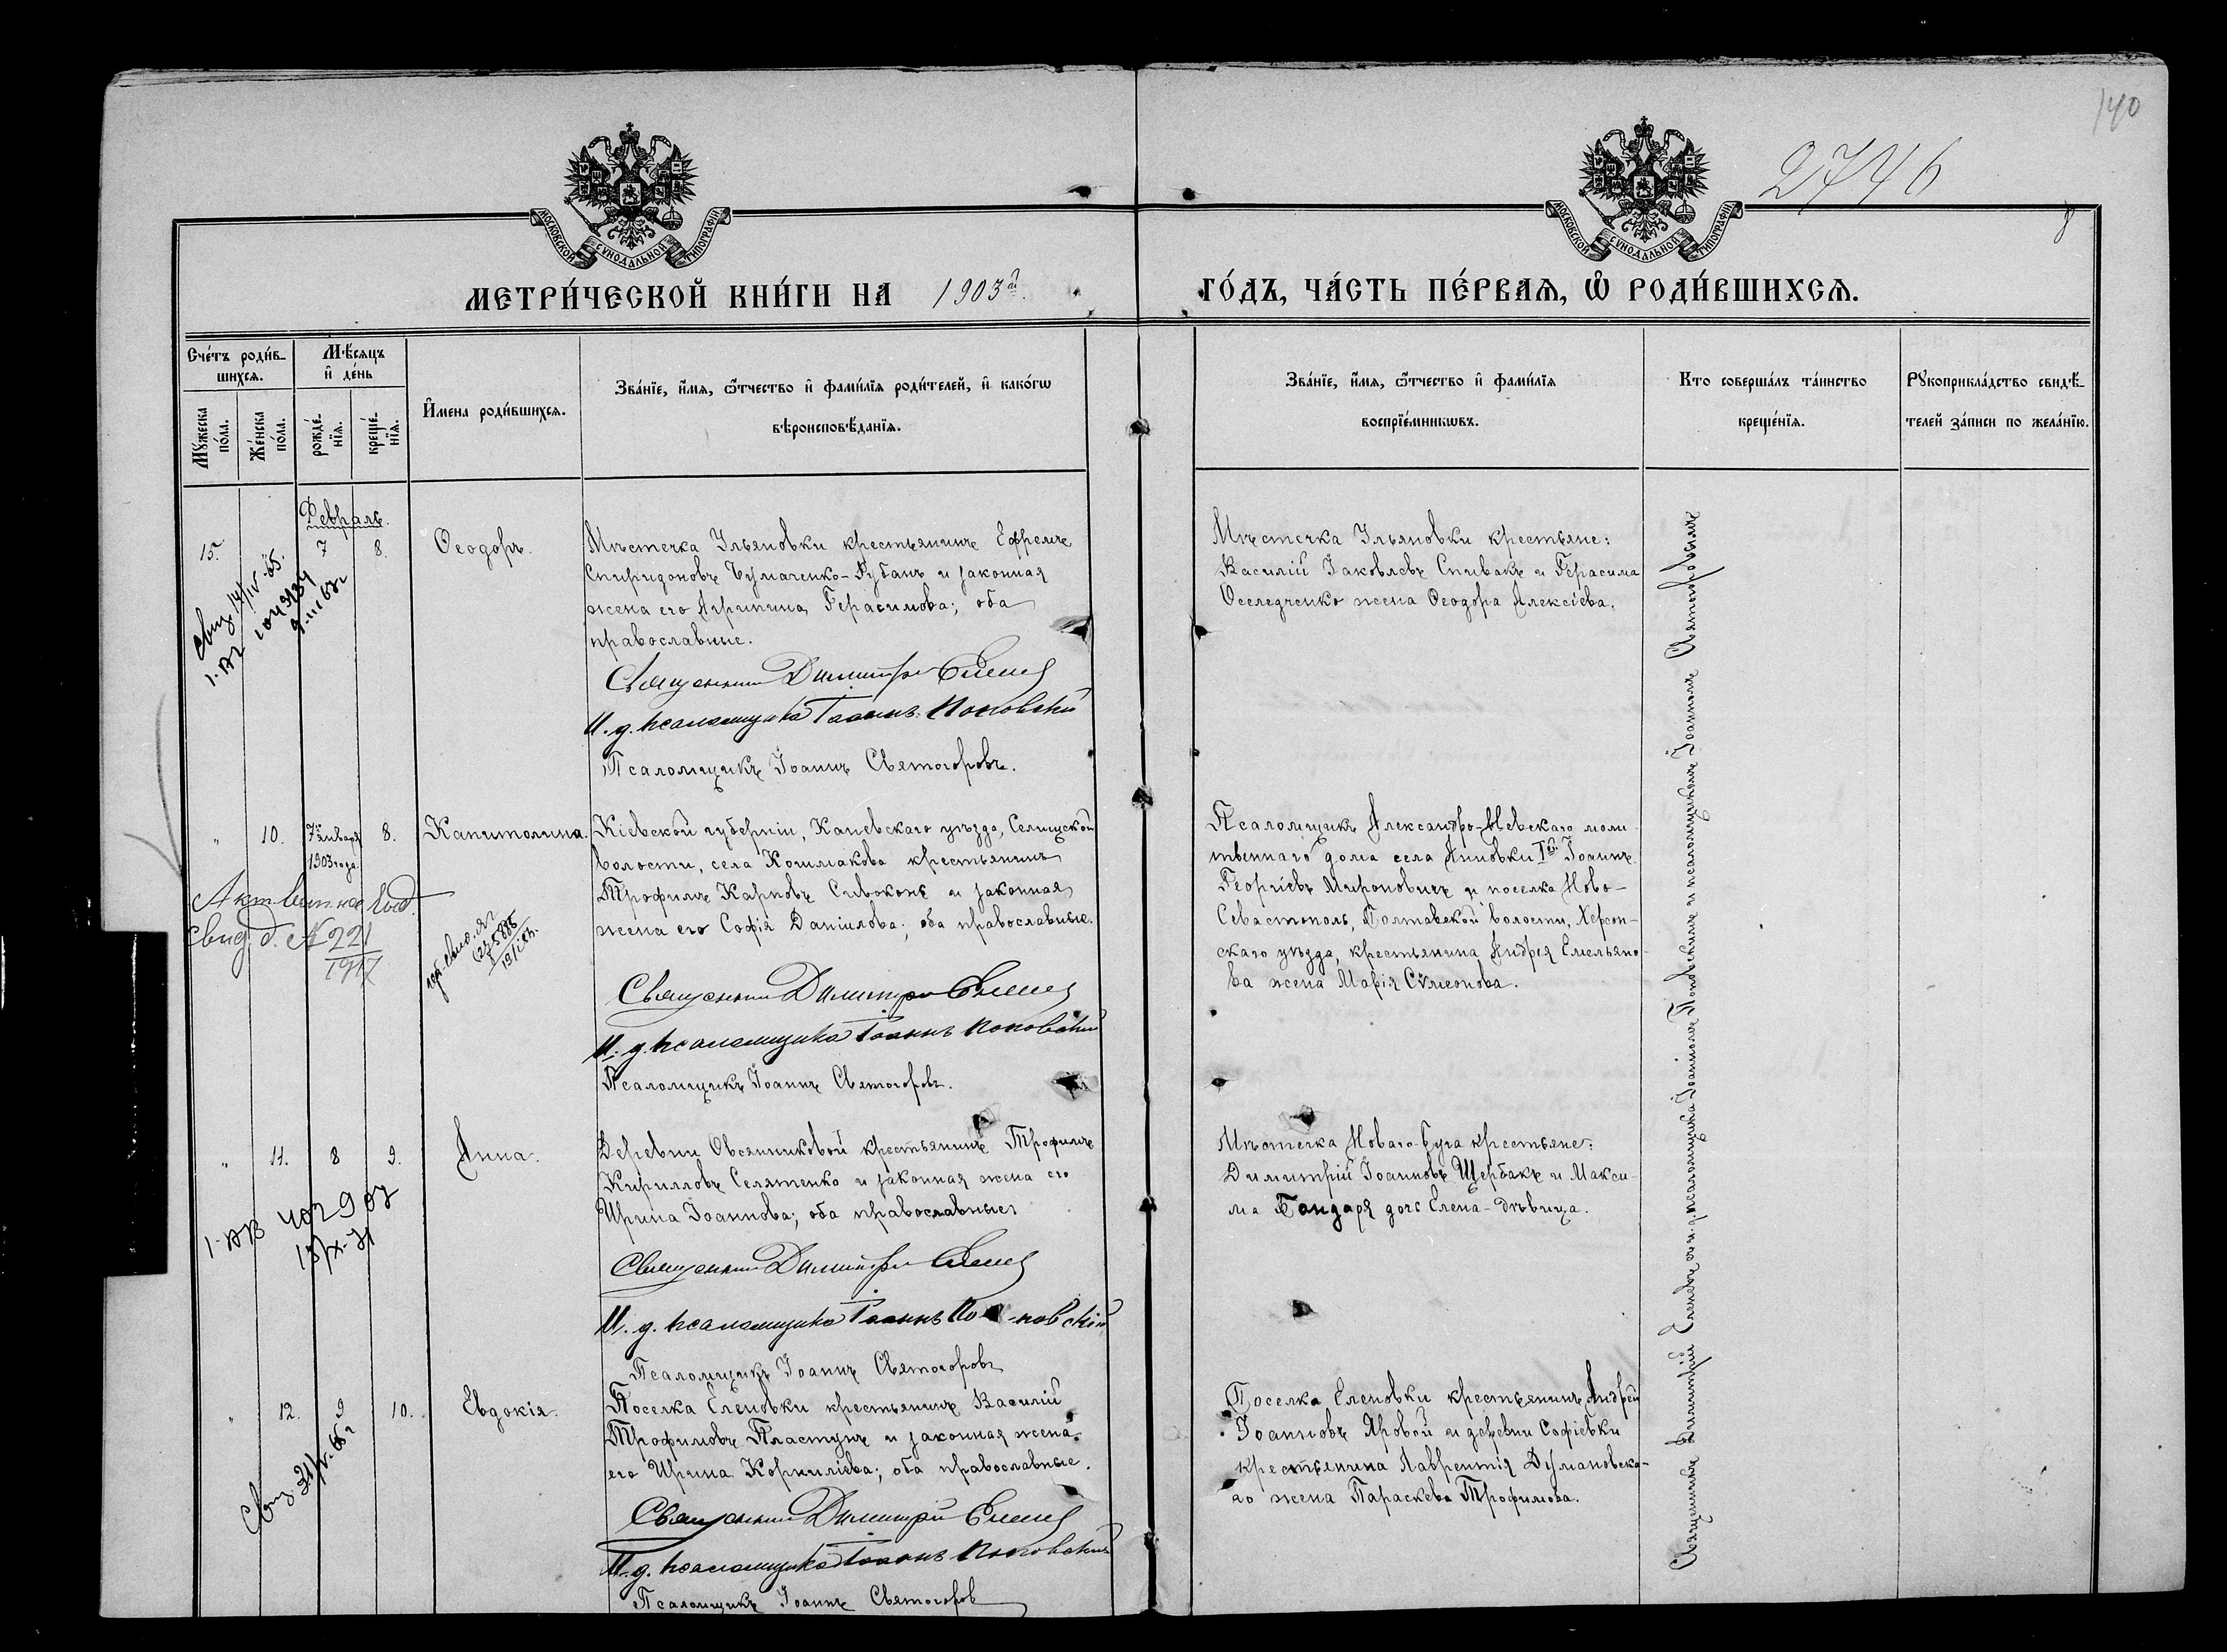 140
2746
8
МОСКОВСКОЙ СѴНОДАЛЬНОЙ ТИПОГРАФІИ
МОСКОВСКОЙ СѴНОДАЛЬНОЙ ТИПОГРАФІИ
МЕТРИ́ЧЕСКОЙ КНИ́ГИ НА 1903й.
ГО́ДЪ, ЧА́СТЬ ПЕ́РВАѦ, Ѡ҆ РОДИ́ВШИХСѦ.
Сче́тъ роди́в-
шихсѧ.
Мꙋ́жеска
по́ла.
Же́нска
по́ла.
Мѣ́сѧцъ
и҆ де́нь
рожде́-
нїѧ.
креще́-
нїѧ.
И҆мена роди́вшихсѧ.
Зва́нїе, и҆́мѧ, ѻ҆́тчество и҆ фами́лїѧ роди́телей, и҆ како́гѡ
вѣроисповѣ́данїѧ.
Зва́нїе, и҆́мѧ, ѻ҆́тчество и҆ фами́лїѧ
воспрїе́мникѡвъ.
Кто соверша́лъ та́инство
креще́нїѧ.
Рꙋкоприкла́дство свидѣ́-
телей за́писи по жела́нїю.
Февраль.
15.
7
8.
Ѳеодоръ.
Мѣстечка Ульяновки крестьянинъ Ефремъ
Спиридоновъ Чумаченко-Губанъ и законная
жена его Агрипина Герасимова; оба
православные.
Священникъ Димитрій
И. д. псаломщика Іоаннъ
Псаломщикъ Іоаннъ Святогоровъ.
Мѣстечка Ульяновки крестьяне:
Василій Іаковлевъ Спивакъ и Герасима
Оселедченко жена Ѳеодора Алексіева.
"
10.
7го января
1903 года
8.
Капитолина.
Кіевской губерніи, Каневскаго уѣзда, Селищской
волости, села Кошмакова крестьянинъ
Трофимъ Карповъ Сивоконь и законная
жена его Софія Даніилова; оба православные.
Священникъ Димитрій
И. д. псаломщика Іоаннъ
Псаломщикъ Іоаннъ Святогоровъ.
Псаломщикъ Александро-Невскаго моли-
твеннаго дома села Анновки Iй Іоаннъ
Георгіевъ Мироновичъ и поселка Ново-
Севастополь, Полтавской волости, Херсон-
скаго уѣзда, крестьянина Андрея Емельяно-
ва жена Марія Сѵмеонова.
221
1917
"
11.
8
9.
Анна.
Деревни Овсянниковой крестьянинъ Трофимъ
Кирилловъ Селятенко и законная жена его
Ирина Іоаннова; оба православные.
Священникъ Димитрій
И. д. псаломщика Іоаннъ
Псаломщикъ Іоаннъ Святогоровъ
Мѣстечка Новаго-Буга крестьяне:
Димитрій Іоанновъ Щербакъ и Макси-
ма Бондаря дочь Елена - дѣвица.
"
12.
9
10.
Евдокія.
Поселка Еленовки крестьянинъ Василій
Трофимовъ Пластунъ и законная жена
его Ирина Корниліева; оба православные.
Священникъ Димитрій
И. д. псаломщика Іоаннъ
Псаломщикъ Іоаннъ Святогоров
Поселка Еленовки крестьянинъ Андрей
Іоанновъ Яровой и деревни Софіевки
крестьянина Лаврентія Думановска-
го жена Параскева Трофимова.